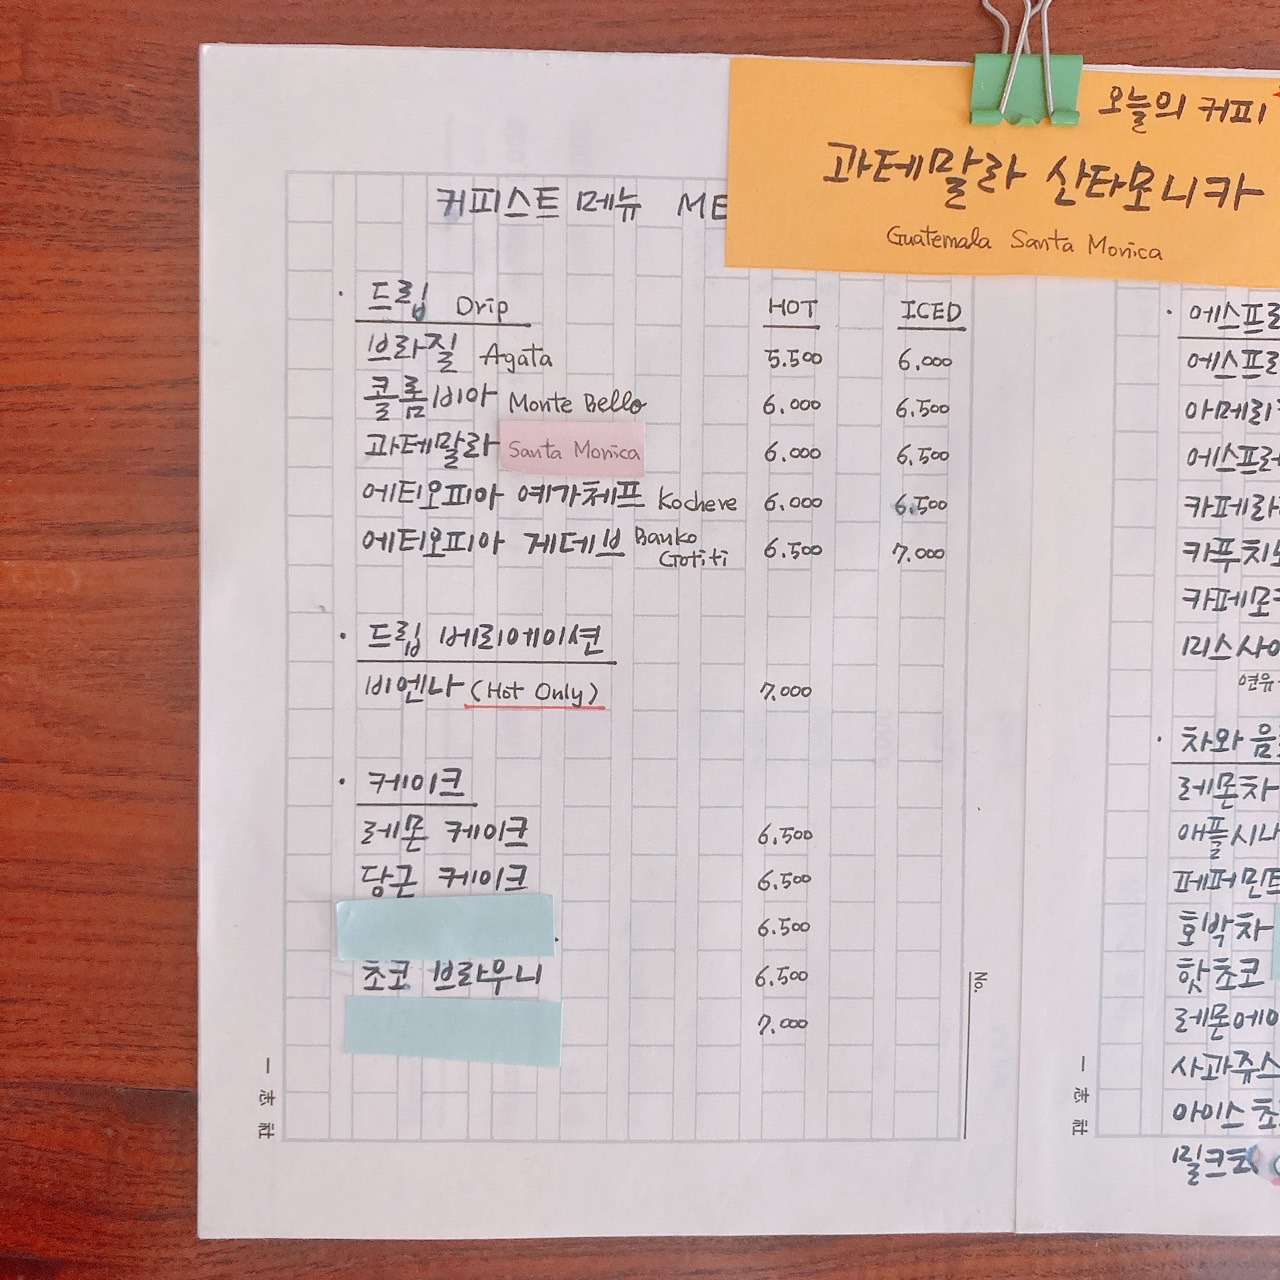 오늘의 커피
과테말라 산타모니카
Guatemala Santa Monica
커피스트 메뉴 ME
· 드립 Drip HOT ICED
브라질 Agata 5.500 6.000
콜롬비아 Monte Bello 6.000 6.500
과테말라 Santa Monica 6.000 6.500
에티오피아 예가체프 Kochere 6.000 6.500
에티오피아 게데브 Banko Gotiti 6.500 7.000
· 드립 베리에이션
비엔나 (Hot Only) 7.000
· 케이크
레몬 케이크 6.500
당근 케이크 6.500
6.500
초코 브라우니 6.500
7.000
No.
一志社
· 에스프레
에스프레
아메리
에스프레
카페라
카푸치노
카페모
미스사이
연유
· 차와 음
레몬차
애플시나
페퍼민트
호박차
핫초코
레몬에이
사과쥬스
아이스 초
밀크티
一志社